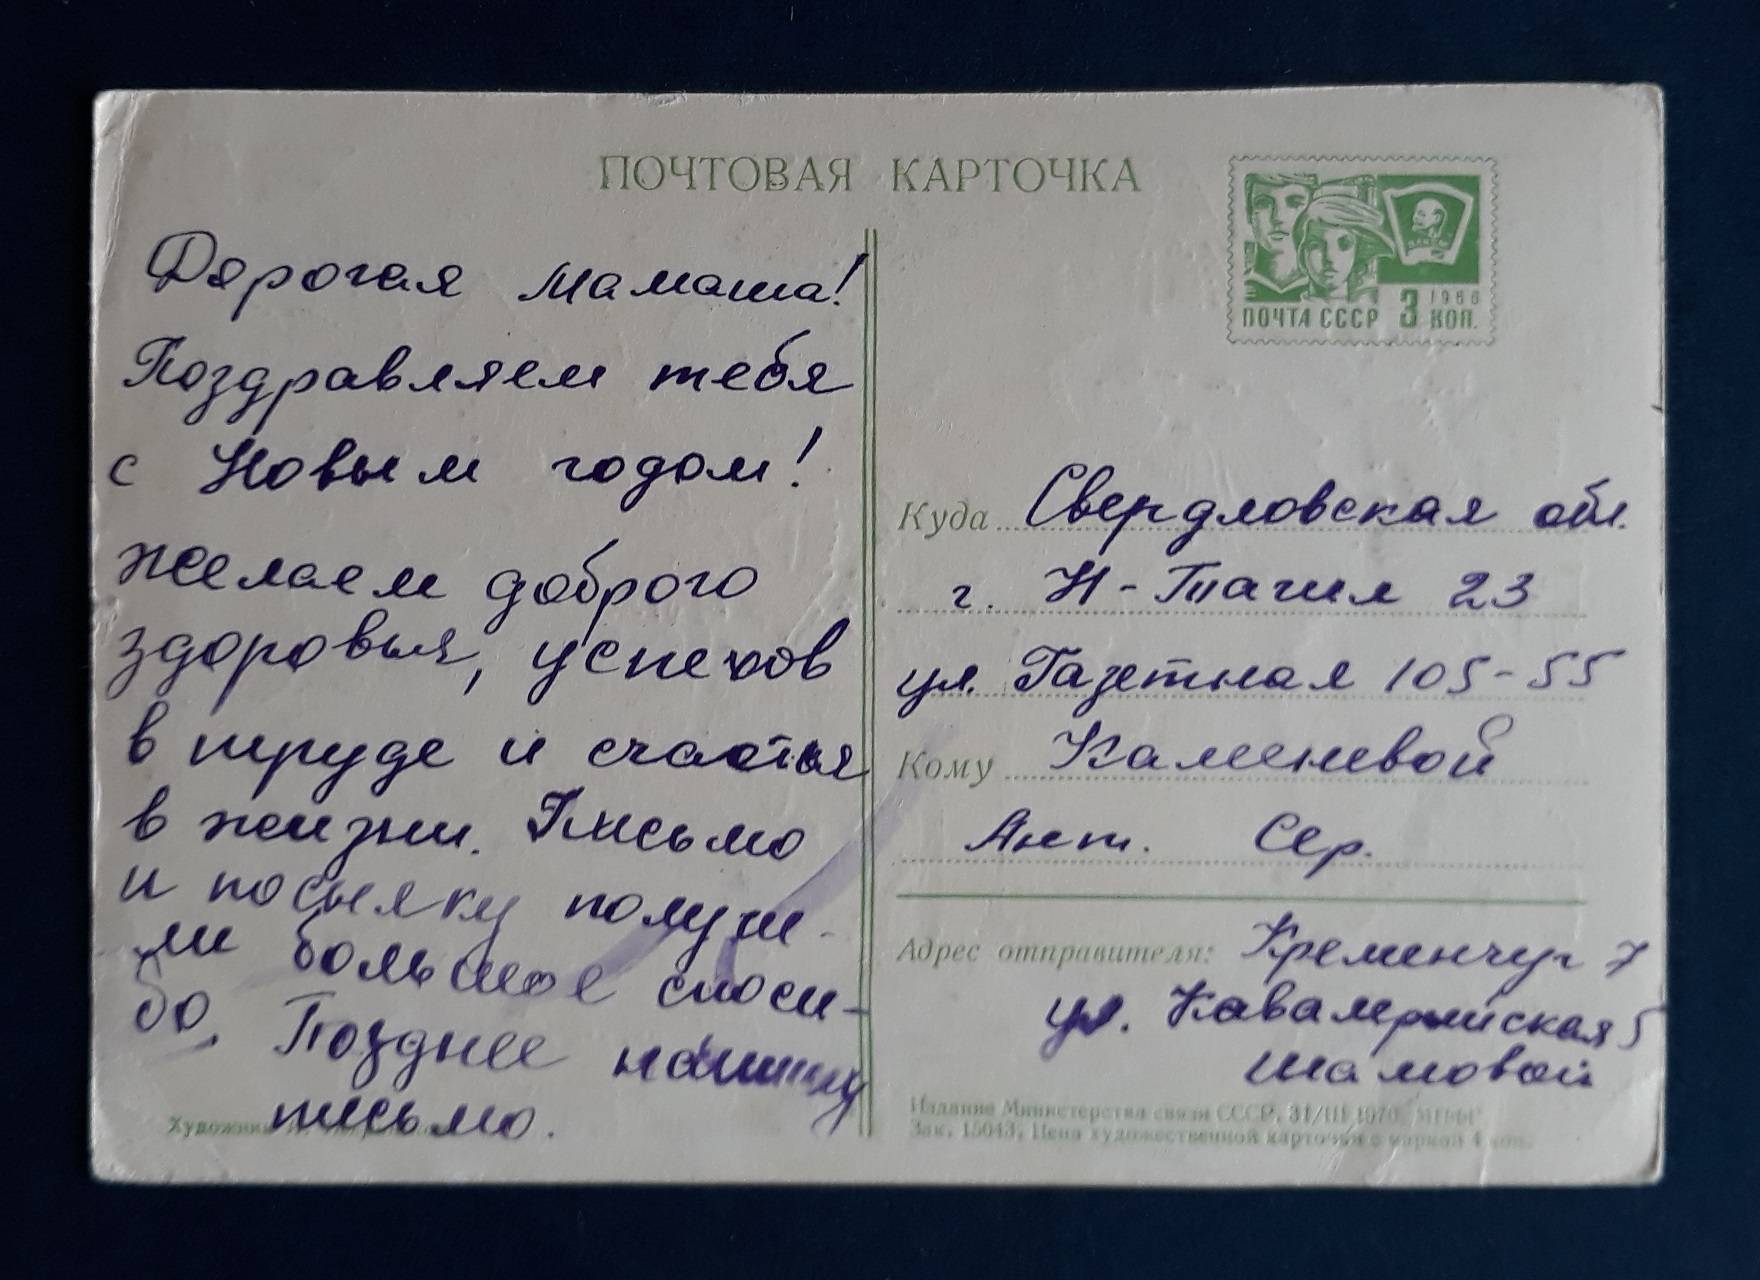 ПОЧТОВАЯ КАРТОЧКА
1966
ПОЧТА СССР 3 КОП.
Дорогая мамаша!
Поздравляем тебя
с Новым годом!
желаем доброго
здоровья, успехов
в труде и счастья
в жизни. Письмо
и посылку получи-
ли большое спаси-
бо. Позднее напишу
письмо.
Художник
Куда Свердловская обл.
г. Н-Тагил 23
ул. Газетная 105-55
Кому Каменевой
Ант. Сер.
Адрес отправителя: Кременчуг 7
ул. Кавалерийская 5
Шамовой
Издание Министерства связи СССР. 31/III 1970.
Зак. 15043. Цена художественной карточки с маркой 4 коп.